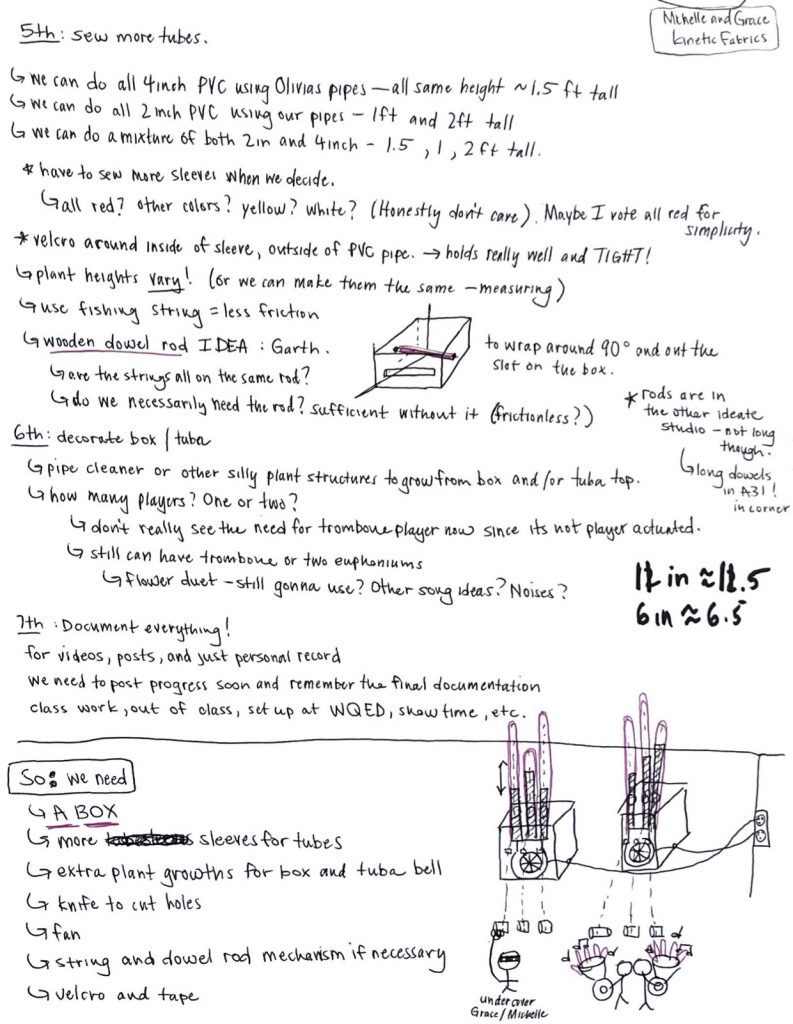 Michelle and Grace
Kinetic Fabrics
5th: sew more tubes.
↳ we can do all 4inch PVC using Olivias pipes — all same height ~1.5 ft tall
↳ we can do all 2 inch PVC using our pipes - 1ft and 2ft tall
↳ we can do a mixture of both 2in and 4inch - 1.5, 1, 2 ft tall.
* have to sew more sleeves when we decide.
↳ all red? other colors? yellow? white? (Honestly don't care). Maybe I vote all red for
simplicity.
* velcro around inside of sleeve, outside of PVC pipe. → holds really well and TIGHT!
↳ plant heights vary! (or we can make them the same - measuring)
↳ use fishing string = less friction
↳ wooden dowel rod IDEA: Garth.
to wrap around 90° and out the
slot on the box.
↳ are the strings all on the same rod?
↳ do we necessarily need the rod? sufficient without it (frictionless?)
* rods are in
the other ideate
studio - not long
though.
↳ long dowels
in A31!
in corner
6th: decorate box / tuba
↳ pipe cleaner or other silly plant structures to grow from box and/or tuba top.
↳ how many players? One or two?
↳ don't really see the need for trombone player now since its not player actuated.
↳ still can have trombone or two euphoniums
↳ flower duet - still gonna use? Other song ideas? Noises?
12 in ≈ 12.5
6 in ≈ 6.5
7th: Document everything!
for videos, posts, and just personal record
we need to post progress soon and remember the final documentation
class work, out of class, set up at WQED, show time, etc.
So: we need
↳ A BOX
↳ more sleeves for tubes
↳ extra plant growths for box and tuba bell
↳ knife to cut holes
↳ fan
↳ string and dowel rod mechanism if necessary
↳ velcro and tape
undercover
Grace/Michelle